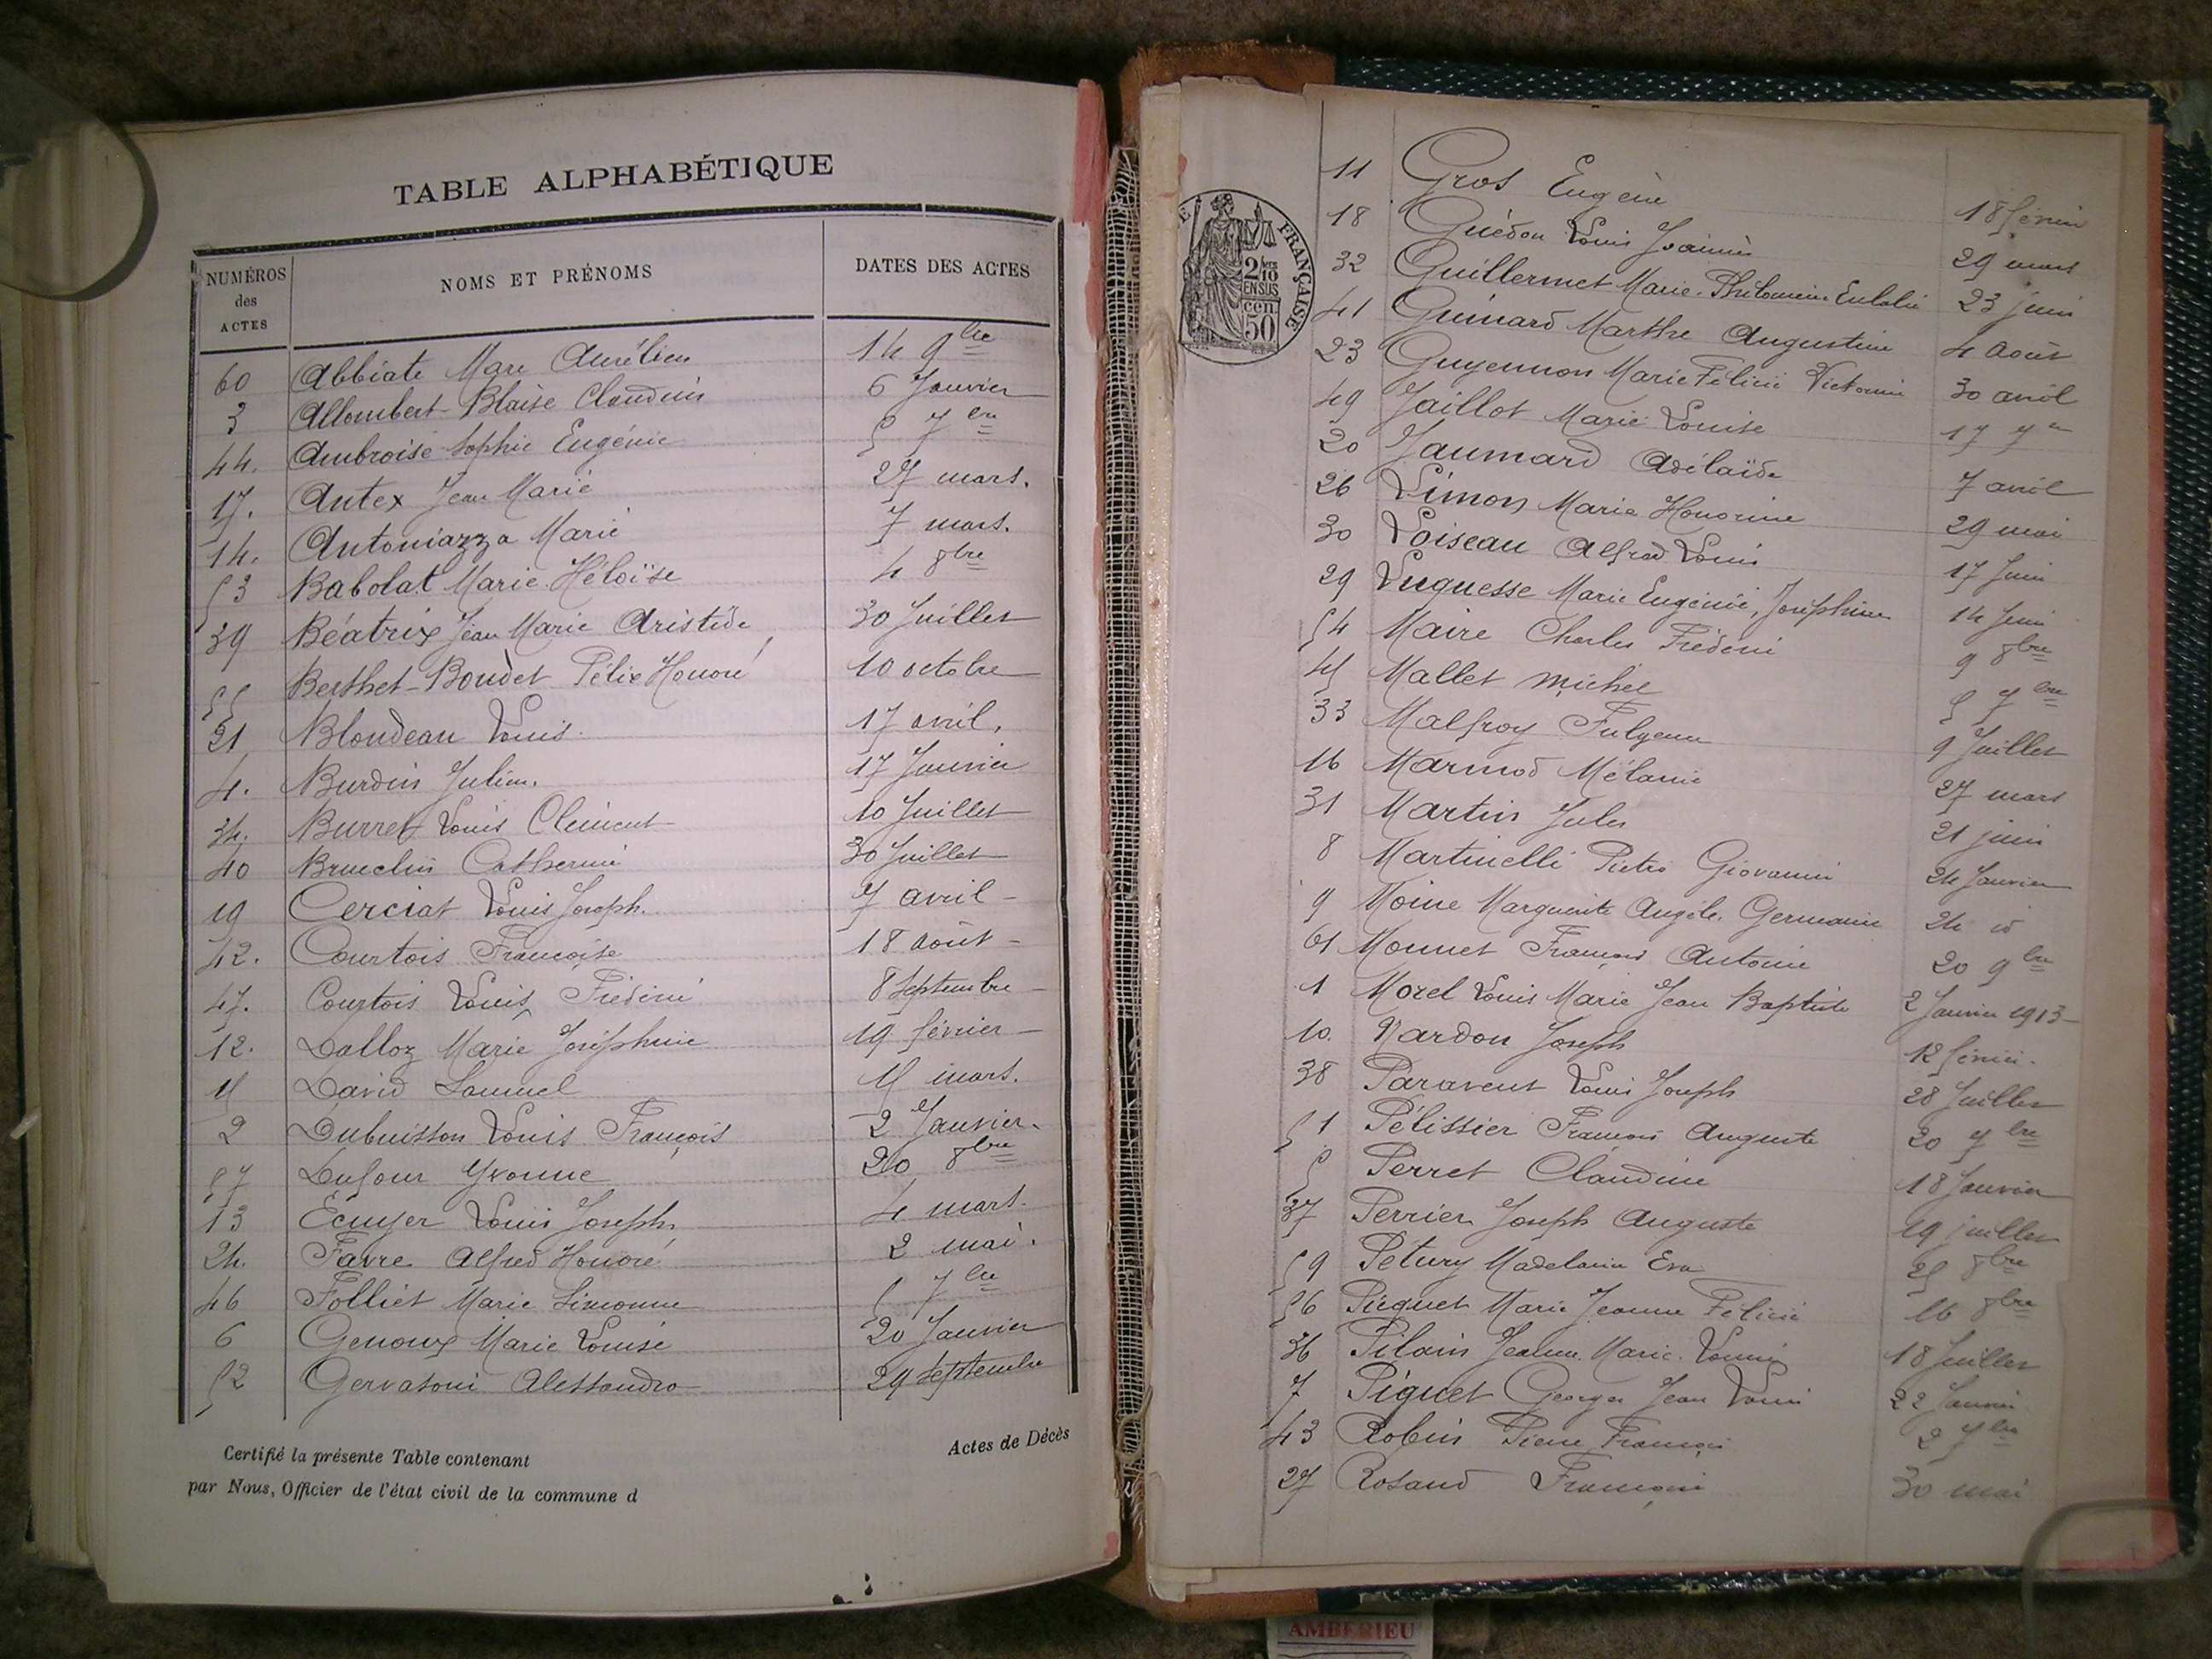 TABLE ALPHABÉTIQUE
NUMÉROS des ACTES NOMS ET PRÉNOMS DATES DES ACTES
60 Abbiate Marc Aurélien 14 9bre
3 Allombert-Blaise Claudius 6 Janvier
44. Ambroise Sophie Eugénie 5 7bre
17. Antex Jean Marie 27 mars.
14. Antoniazza Marie 7 mars.
53 Babolat Marie Héloïse 4 8bre
39 Béatrix Jean Marie Aristide 30 Juillet
55 Berthet-Boudet Félix Honoré 10 octobre
21 Blondeau Louis 17 avril.
4. Burdin Julien. 17 Janvier
34. Burret Louis Clément 10 Juillet
40 Catherine 30 Juillet
19 Cerciat Louis Joseph. 7 avril
42. Courtois Françoise 18 août
47. Courtois Louis Frédéric 8 Septembre
12. Dalloz Marie Joséphine 19 février
15 David Samuel 15 mars.
2 Dubuisson Louis François 2 Janvier.
57 Dufour Yvonne 20 8bre
13 Ecuyer Louis Joseph 4 mars.
24. Favre Alfred Honoré 2 mai.
46 Folliet Marie Simonne 5 7bre
6 Genoux Marie Louise 20 Janvier
52 Gervasoni Alessandro 29 Septembre
Certifié la présente Table contenant Actes de Décès
par Nous, Officier de l'état civil de la commune d
FRANÇAISE
2/10 EN SUS
50 cen
11 Gros Eugène 18 février
18 Guédon Louis Joannès 29 mars
32 Guillermet Marie-Philomène Eulalie 23 juin
41 Guinard Marthe Augustine 4 août
23 Guyennon Marie Félicie Victorine 30 avril
49 Jaillot Marie Louise 17 7re
20 Jaumard Adélaïde 7 avril
26 Limon Marie Honorine 29 mai
30 Loiseau Alfred Louis 17 Juin
29 Luquesse Marie Eugénie, Joséphine 14 Juin
54 Maire Charles Frédéric 9 8bre
45 Mallet Michel 5 7bre
33 Malfroy Fulgence 9 Juillet
16 Marmod Mélanie 27 mars
31 Martin Jules 21 juin
8 Martinelli Pietro Giovanni 24 Janvier
9 Moine Marguerite Angèle Germaine 24 id
61 Monnet François Antoine 20 9bre
1 Morel Louis Marie Jean Baptiste 2 Janvier 1913
10. Nardon Joseph 12 février.
38 Paravent Louis Joseph 28 Juillet
51 Pélissier François Auguste 20 7bre
5 Perret Claudine 18 Janvier
37 Perrier Joseph Auguste 19 juillet
59 Pétury Madeleine Eva 25 8bre
56 Piequet Marie Jeanne Félicie 16 8bre
36 Pilain Jeanne Marie Louise 18 Juillet
7 Piquet Georges Jean Louis 22 Janvier
43 Robin Pierre François 2 7bre
27 Rosand 30 mai
AMBERIEU